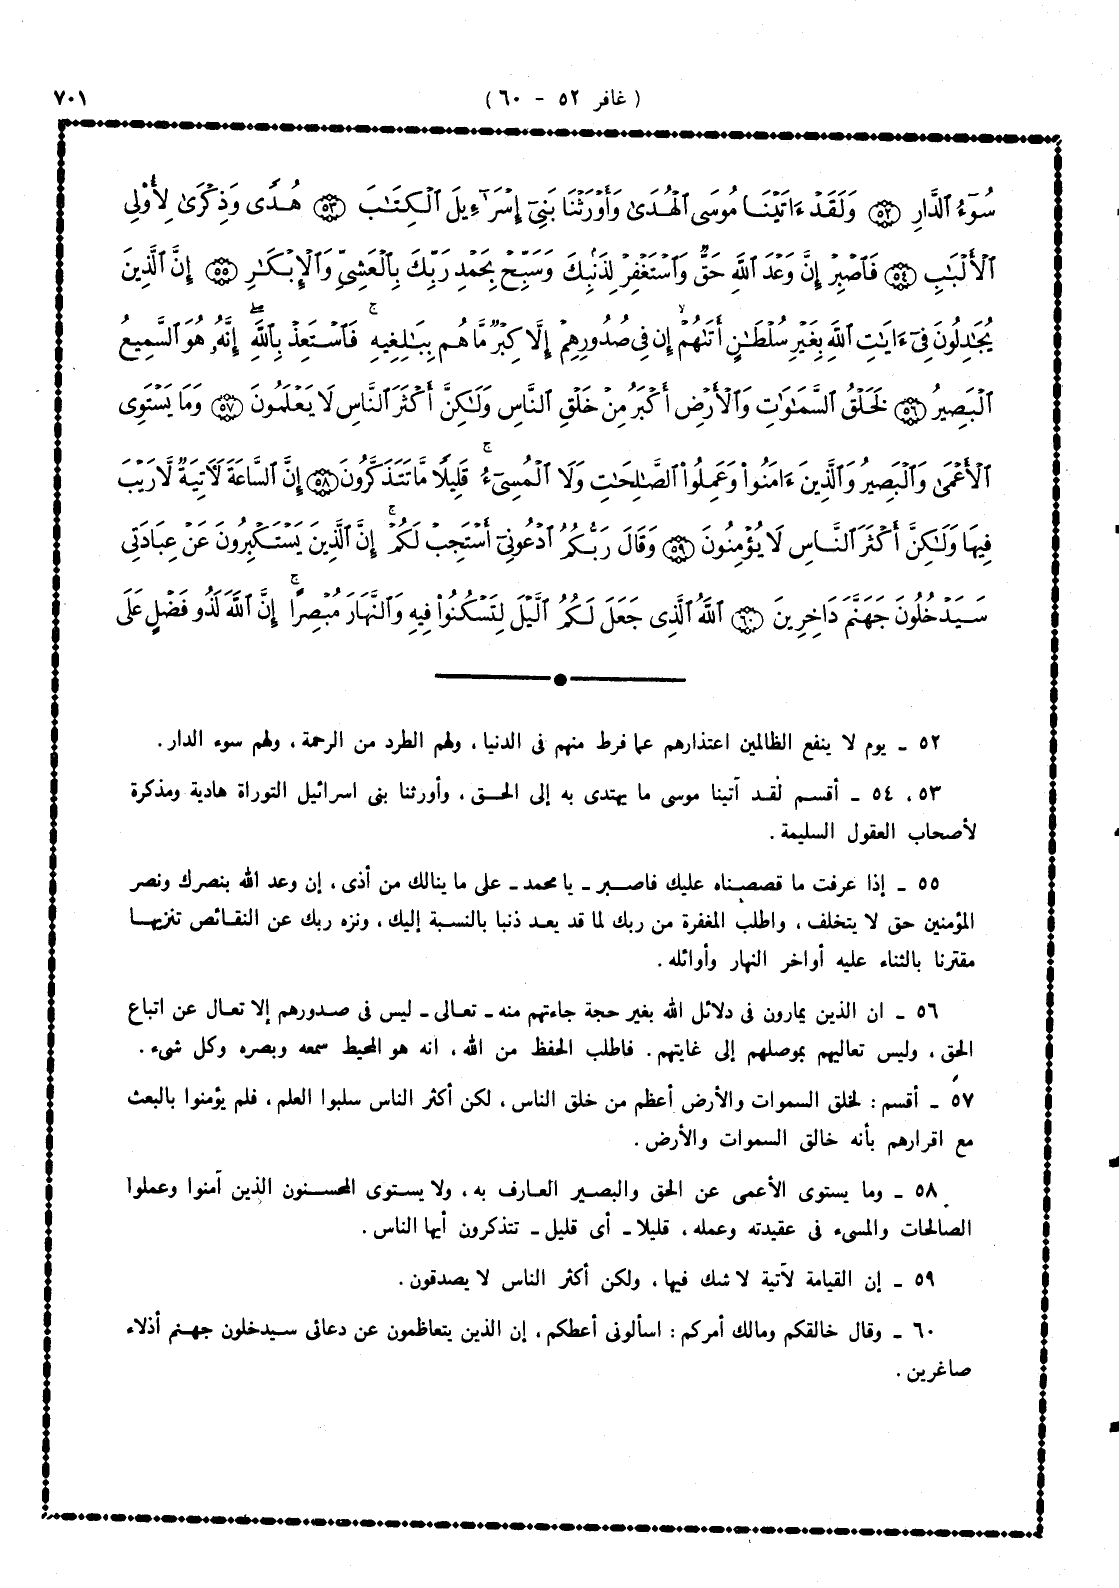 ( غافر ٥٢ - ٦٠ )
٧٠١
سُوٓءُ ٱلدَّارِ ۝٥٢ وَلَقَدْ ءَاتَيْنَا مُوسَى ٱلْهُدَىٰ وَأَوْرَثْنَا بَنِىٓ إِسْرَـٰٓءِيلَ ٱلْكِتَـٰبَ ۝٥٣ هُدًى وَذِكْرَىٰ لِأُو۟لِى
ٱلْأَلْبَـٰبِ ۝٥٤ فَٱصْبِرْ إِنَّ وَعْدَ ٱللَّهِ حَقٌّ وَٱسْتَغْفِرْ لِذَنۢبِكَ وَسَبِّحْ بِحَمْدِ رَبِّكَ بِٱلْعَشِىِّ وَٱلْإِبْكَـٰرِ ۝٥٥ إِنَّ ٱلَّذِينَ
يُجَـٰدِلُونَ فِىٓ ءَايَـٰتِ ٱللَّهِ بِغَيْرِ سُلْطَـٰنٍ أَتَىٰهُمْ ۙ إِن فِى صُدُورِهِمْ إِلَّا كِبْرٌ مَّا هُم بِبَـٰلِغِيهِ ۚ فَٱسْتَعِذْ بِٱللَّهِ ۖ إِنَّهُۥ هُوَ ٱلسَّمِيعُ
ٱلْبَصِيرُ ۝٥٦ لَخَلْقُ ٱلسَّمَـٰوَٰتِ وَٱلْأَرْضِ أَكْبَرُ مِنْ خَلْقِ ٱلنَّاسِ وَلَـٰكِنَّ أَكْثَرَ ٱلنَّاسِ لَا يَعْلَمُونَ ۝٥٧ وَمَا يَسْتَوِى
ٱلْأَعْمَىٰ وَٱلْبَصِيرُ وَٱلَّذِينَ ءَامَنُوا۟ وَعَمِلُوا۟ ٱلصَّـٰلِحَـٰتِ وَلَا ٱلْمُسِىٓءُ ۚ قَلِيلًا مَّا تَتَذَكَّرُونَ ۝٥٨ إِنَّ ٱلسَّاعَةَ لَـَٔاتِيَةٌ لَّا رَيْبَ
فِيهَا وَلَـٰكِنَّ أَكْثَرَ ٱلنَّاسِ لَا يُؤْمِنُونَ ۝٥٩ وَقَالَ رَبُّكُمُ ٱدْعُونِىٓ أَسْتَجِبْ لَكُمْ ۚ إِنَّ ٱلَّذِينَ يَسْتَكْبِرُونَ عَنْ عِبَادَتِى
سَيَدْخُلُونَ جَهَنَّمَ دَاخِرِينَ ۝٦٠ ٱللَّهُ ٱلَّذِى جَعَلَ لَكُمُ ٱلَّيْلَ لِتَسْكُنُوا۟ فِيهِ وَٱلنَّهَارَ مُبْصِرًا ۚ إِنَّ ٱللَّهَ لَذُو فَضْلٍ عَلَى
٥٢ ـ يوم لا ينفع الظالمين اعتذارهم عما فرط منهم فى الدنيا ، ولهم الطرد من الرحمة ، ولهم سوء الدار .
٥٣ ، ٥٤ ـ أقسم لقد آتينا موسى ما يهتدى به إلى الحق ، وأورثنا بنى اسرائيل التوراة هادية ومذكرة
لأصحاب العقول السليمة .
٥٥ ـ إذا عرفت ما قصصناه عليك فاصبر ـ يا محمد ـ على ما ينالك من أذى ، إن وعد الله بنصرك ونصر
المؤمنين حق لا يتخلف ، واطلب المغفرة من ربك لما قد يعد ذنبا بالنسبة إليك ، ونزه ربك عن النقائص تنزيها
مقترنا بالثناء عليه أواخر النهار وأوائله .
٥٦ ـ ان الذين يمارون فى دلائل الله بغير حجة جاءتهم منه ـ تعالى ـ ليس فى صدورهم إلا تعال عن اتباع
الحق ، وليس تعاليهم بموصلهم إلى غايتهم . فاطلب الحفظ من الله ، انه هو المحيط سمعه وبصره وكل شىء .
٥٧ ـ أقسم : لخلق السموات والأرض أعظم من خلق الناس ، لكن أكثر الناس سلبوا العلم ، فلم يؤمنوا بالبعث
مع اقرارهم بأنه خالق السموات والأرض .
٥٨ ـ وما يستوى الأعمى عن الحق والبصير العارف به ، ولا يستوى المحسنون الذين آمنوا وعملوا
الصالحات والمسىء فى عقيدته وعمله ، قليلا ـ أى قليل ـ تتذكرون أيها الناس .
٥٩ ـ إن القيامة لآتية لا شك فيها ، ولكن أكثر الناس لا يصدقون .
٦٠ ـ وقال خالقكم ومالك أمركم : اسألونى أعطكم ، إن الذين يتعاظمون عن دعائى سيدخلون جهنم أذلاء
صاغرين .